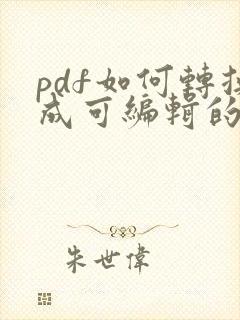 pdf如何轉換
成可編輯的
朱世偉